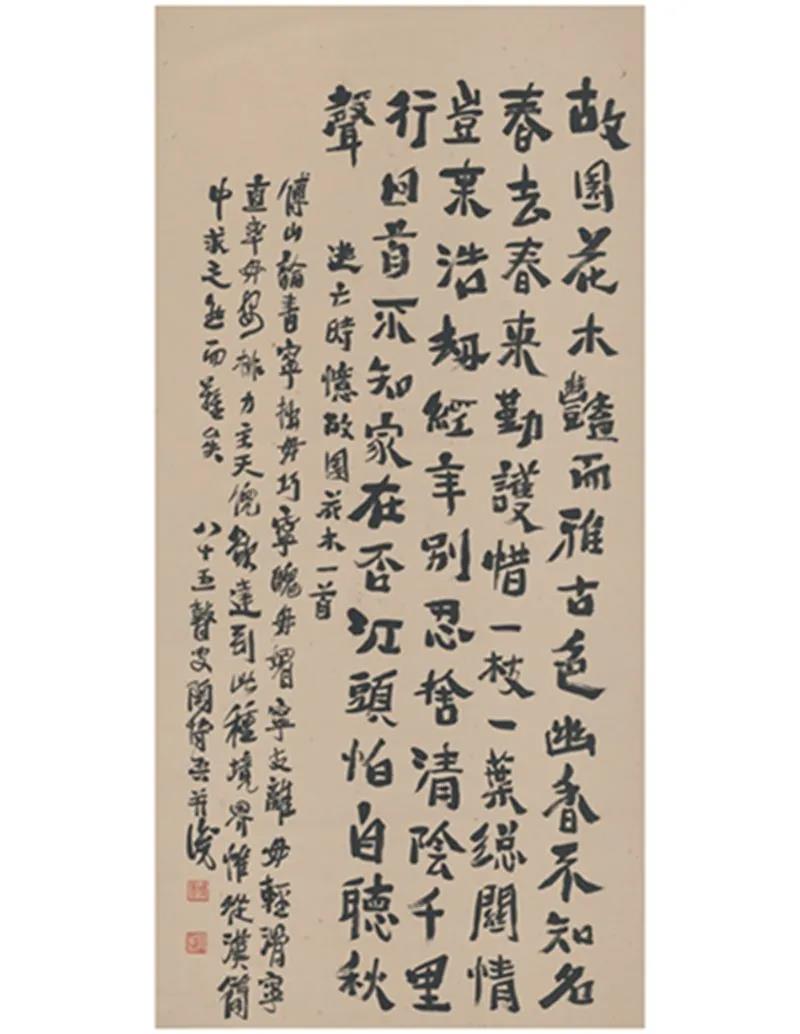 故園花木豔而雅古色幽香不知名
春去春来勤護惜一枝一葉總關情
豈浩劫經年別忍捨清陰千里
行回首不知家在否江頭怕自聽秋
聲
逃亡時憶故園花木一首
傅山論書寧拙毋巧寧醜毋媚寧支離毋輕滑寧
直率毋安排力主天倪欲達到此種境界惟從漢簡
中求之然而難矣 八十五瞽叟陶博吾并識